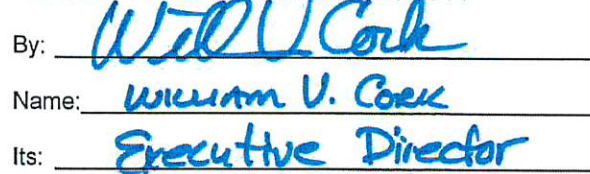 By: Will V. Cork
Name: William V. Cork
Its: Executive Director